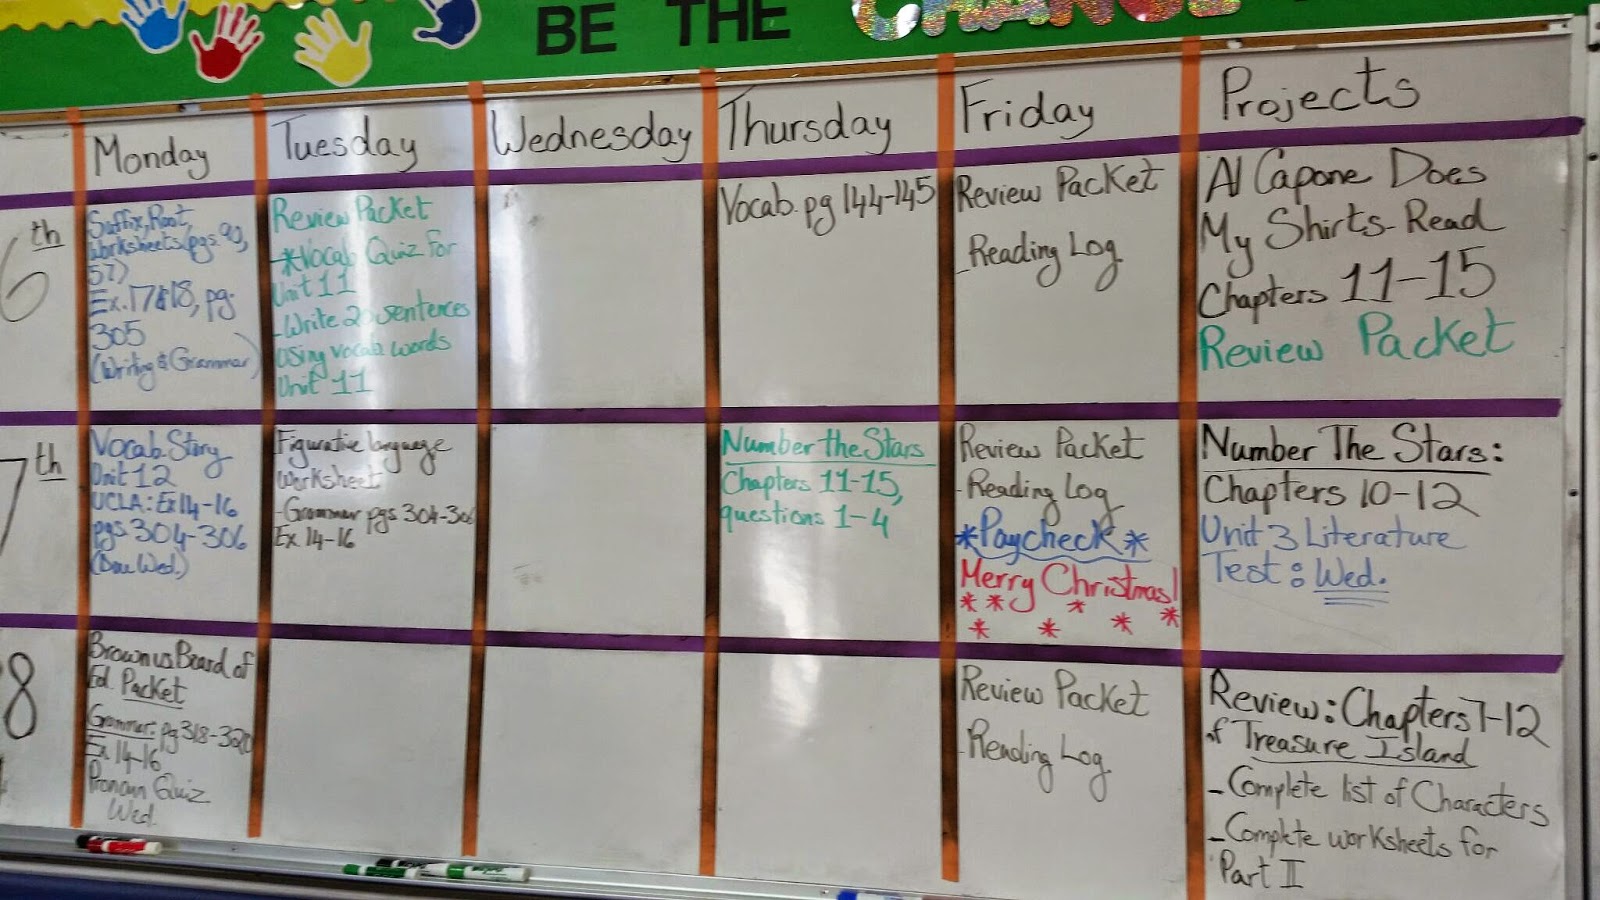 BE THE CHANGE
Monday
Tuesday
Wednesday
Thursday
Friday
Projects
6th
Suffix, Root,
Worksheets (pgs. 90,
57)
Ex. 17&18, pg.
305
(Writing & Grammar)
Review Packet
*Vocab Quiz For
Unit 11
-Write 20 sentences
Using vocab words
Unit 11
Vocab. pg 144-145
Review Packet
-Reading Log
Al Capone Does
My Shirts-Read
Chapters 11-15
Review Packet
7th
Vocab. Story
Unit 12
UCLA: Ex14-16
pgs 304-306
(Due Wed.)
Figurative language
Worksheet
-Grammar pgs 304-306
Ex 14-16
Number the Stars
Chapters 11-15,
questions 1-4
Review Packet
-Reading Log
*Paycheck*
Merry Christmas!
Number The Stars:
Chapters 10-12
Unit 3 Literature
Test: Wed.
8
Brown vs Board of
Ed. Packet
Grammar: pg 318-320
Ex 14-16
Pronoun Quiz
Wed.
Review Packet
-Reading Log
Review: Chapters 7-12
of Treasure Island
-Complete list of Characters
-Complete worksheets for
Part II